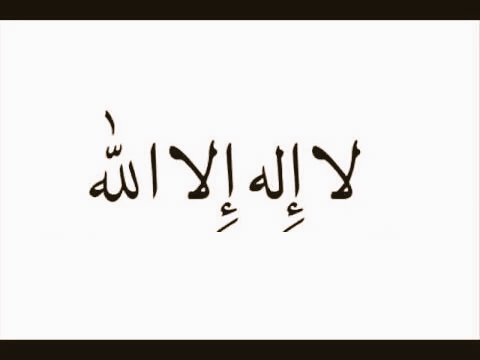 لا إِله إِلا الله